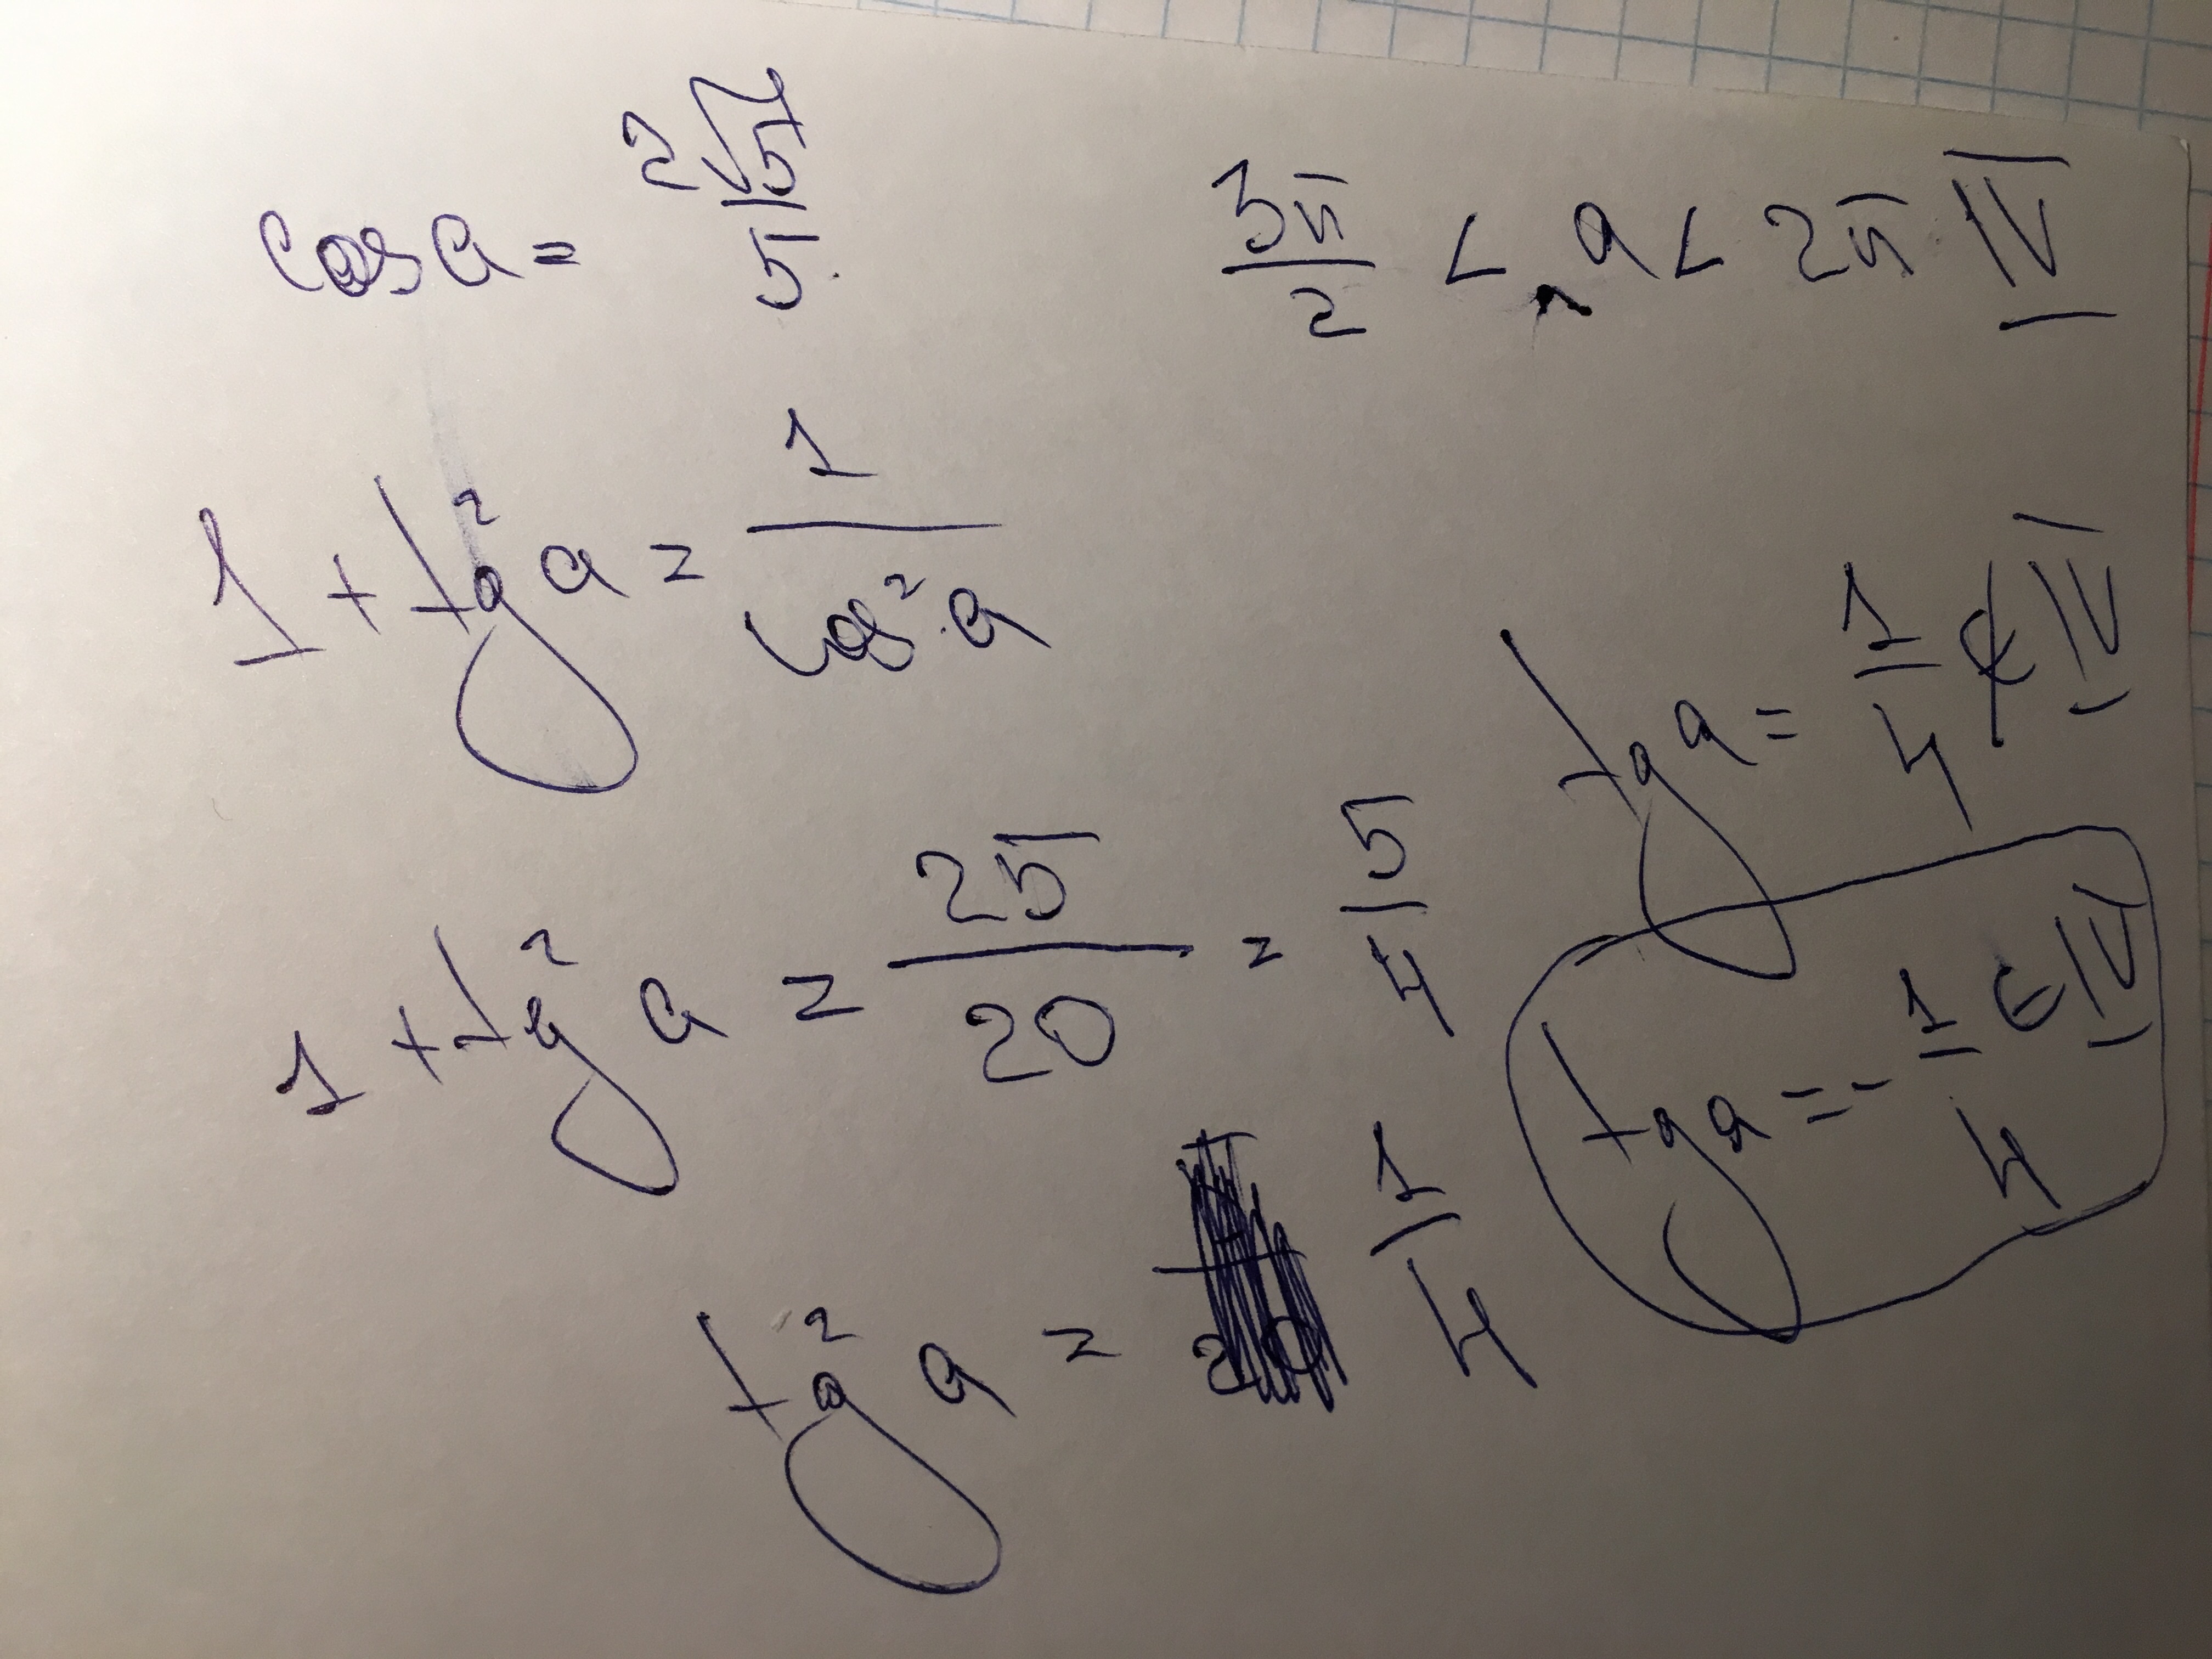 cos a = 2√5/5 3π/2 < a < 2π IV
1 + tg² a = 1/cos² a
1 + tg² a = 25/20 = 5/4
tg² a = 1/4
tg a = 1/4 ∉ IV
tg a = - 1/4 ∈ IV